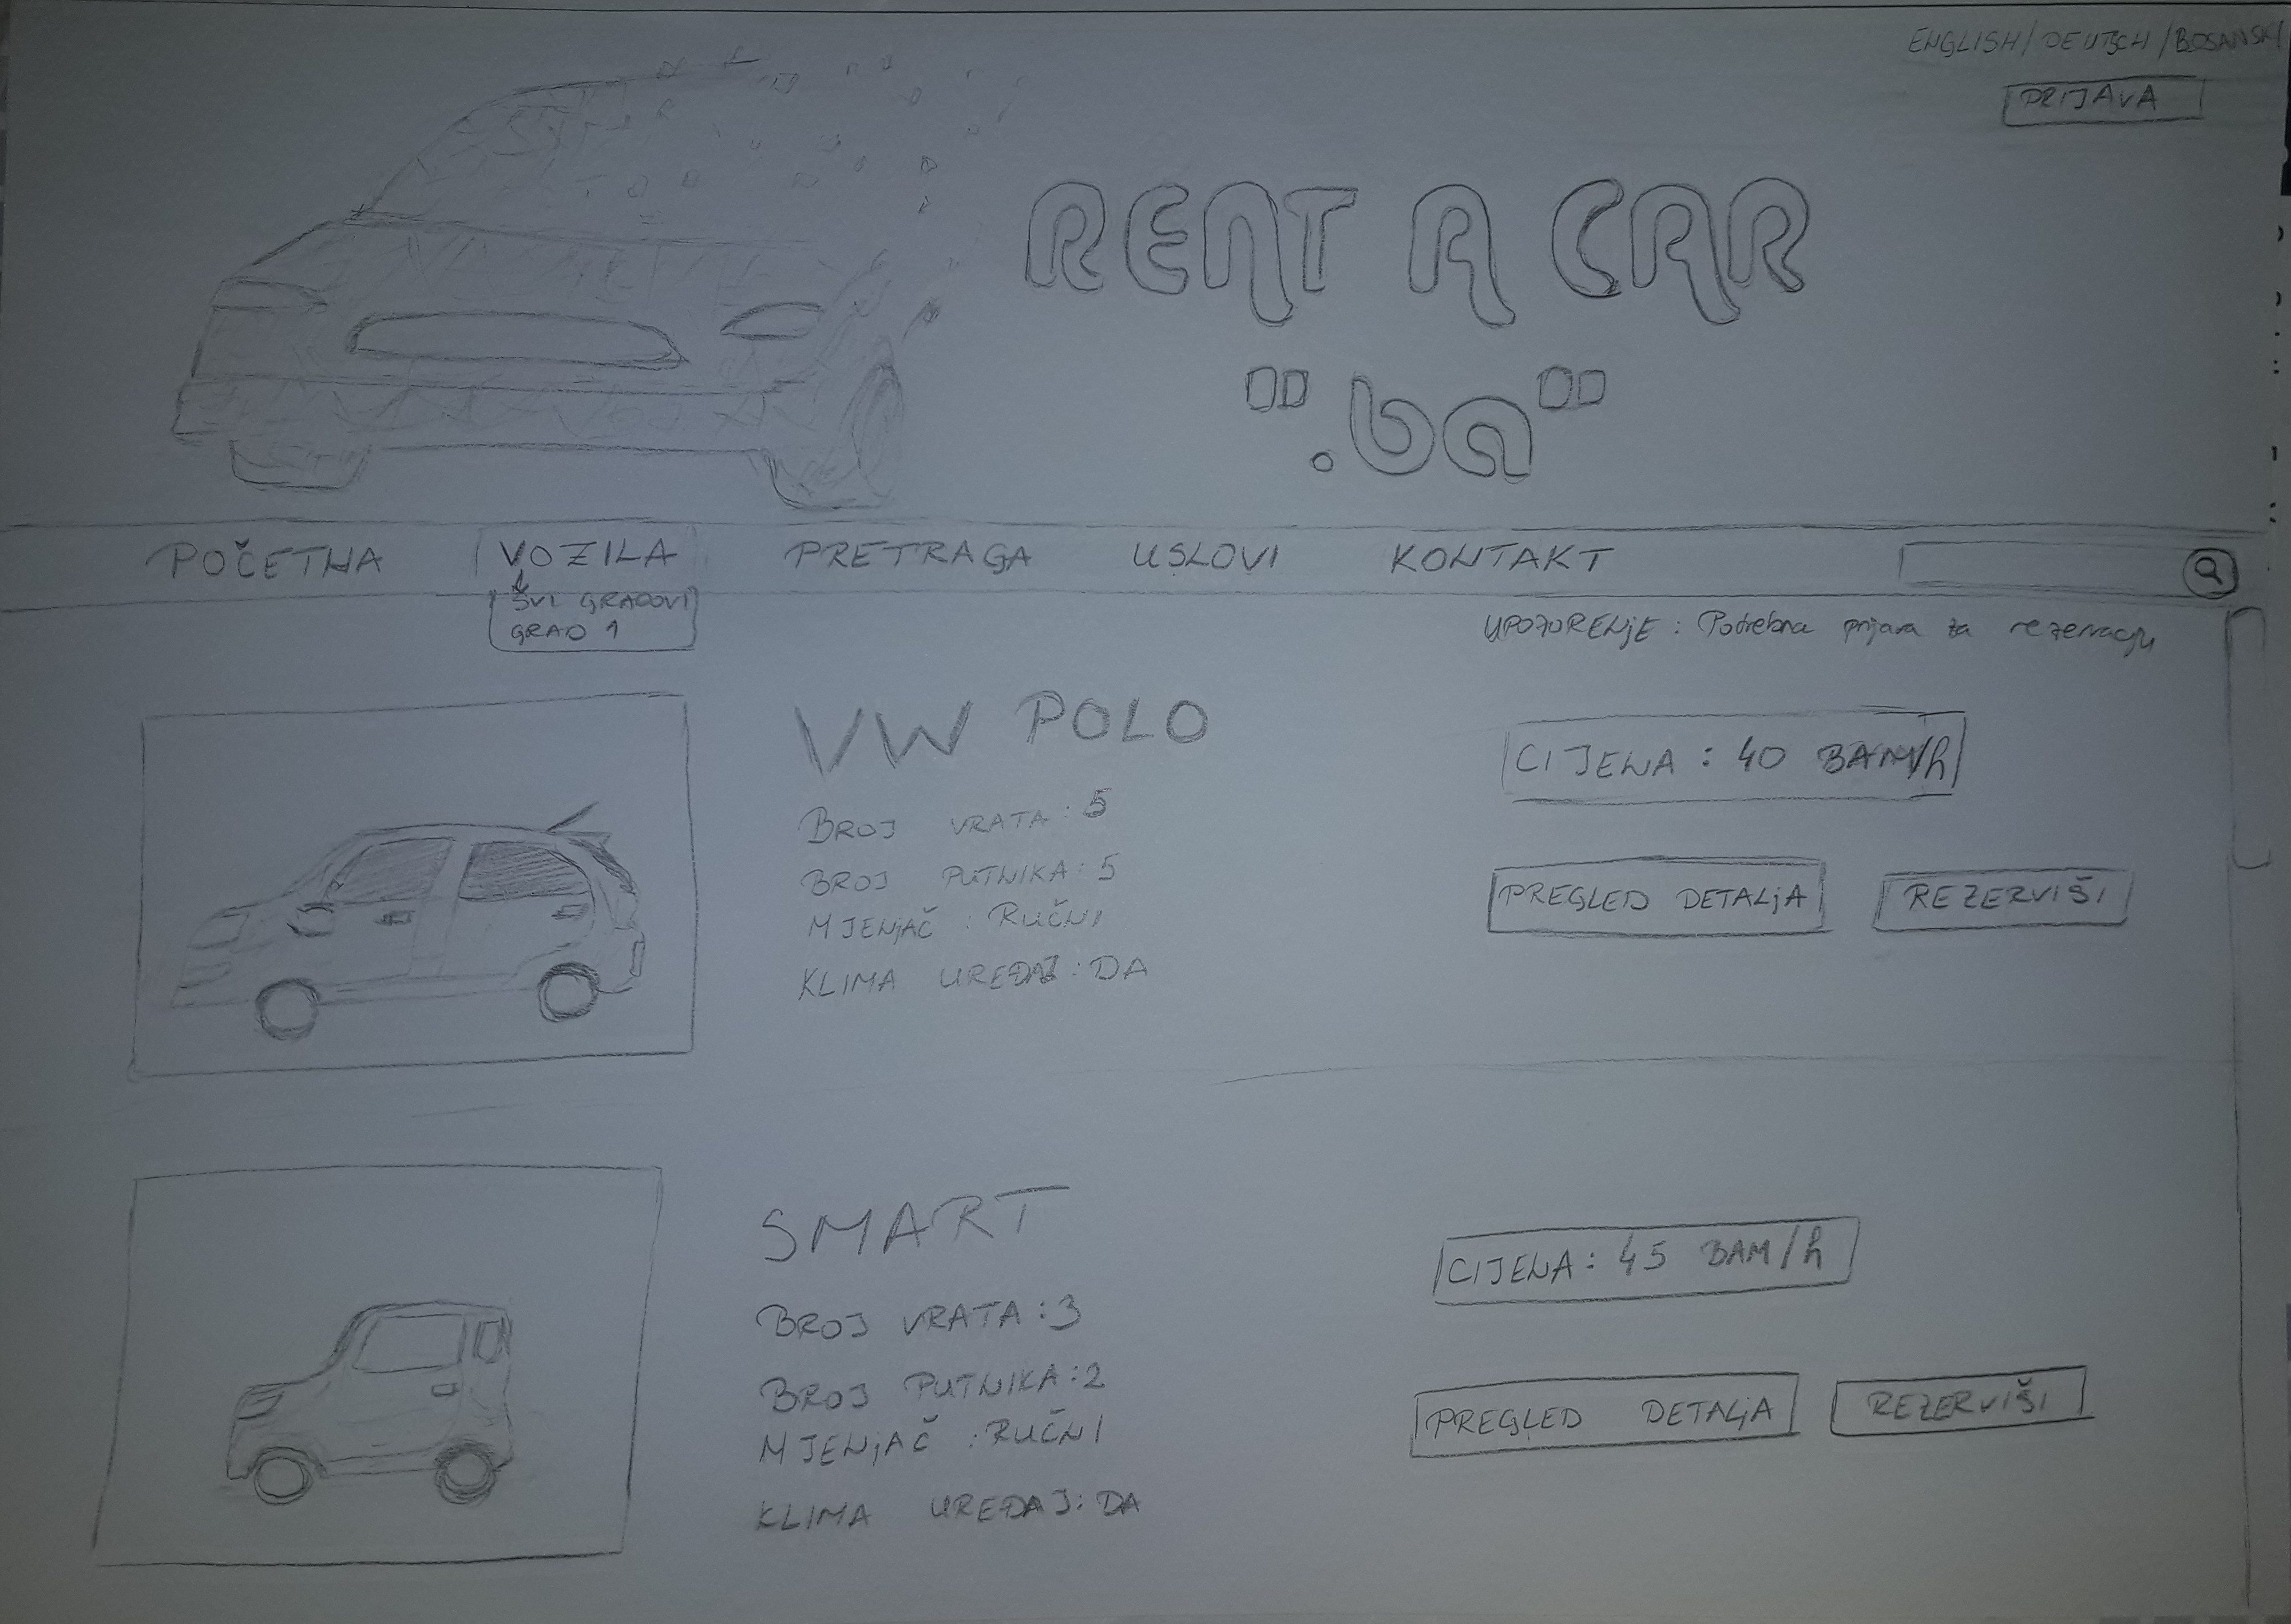 ENGLISH/DEUTSCH/BOSANSKI
PRIJAVA
RENT A CAR
".ba"
POČETNA VOZILA PRETRAGA USLOVI KONTAKT
SVI GRADOVI
GRAD 1
UPOZORENjE : Potrebna prijava za rezervaciju
VW POLO
CIJENA : 40 BAM/h
BROJ VRATA : 5
BROJ PUTNIKA : 5
MJENjAČ : RUČNI
KLIMA UREĐAJ : DA
PREGLED DETALjA REZERVIŠI
SMART
CIJENA : 45 BAM/h
BROJ VRATA : 3
BROJ PUTNIKA : 2
MJENjAČ : RUČNI
KLIMA UREĐAJ : DA
PREGLED DETALjA REZERVIŠI